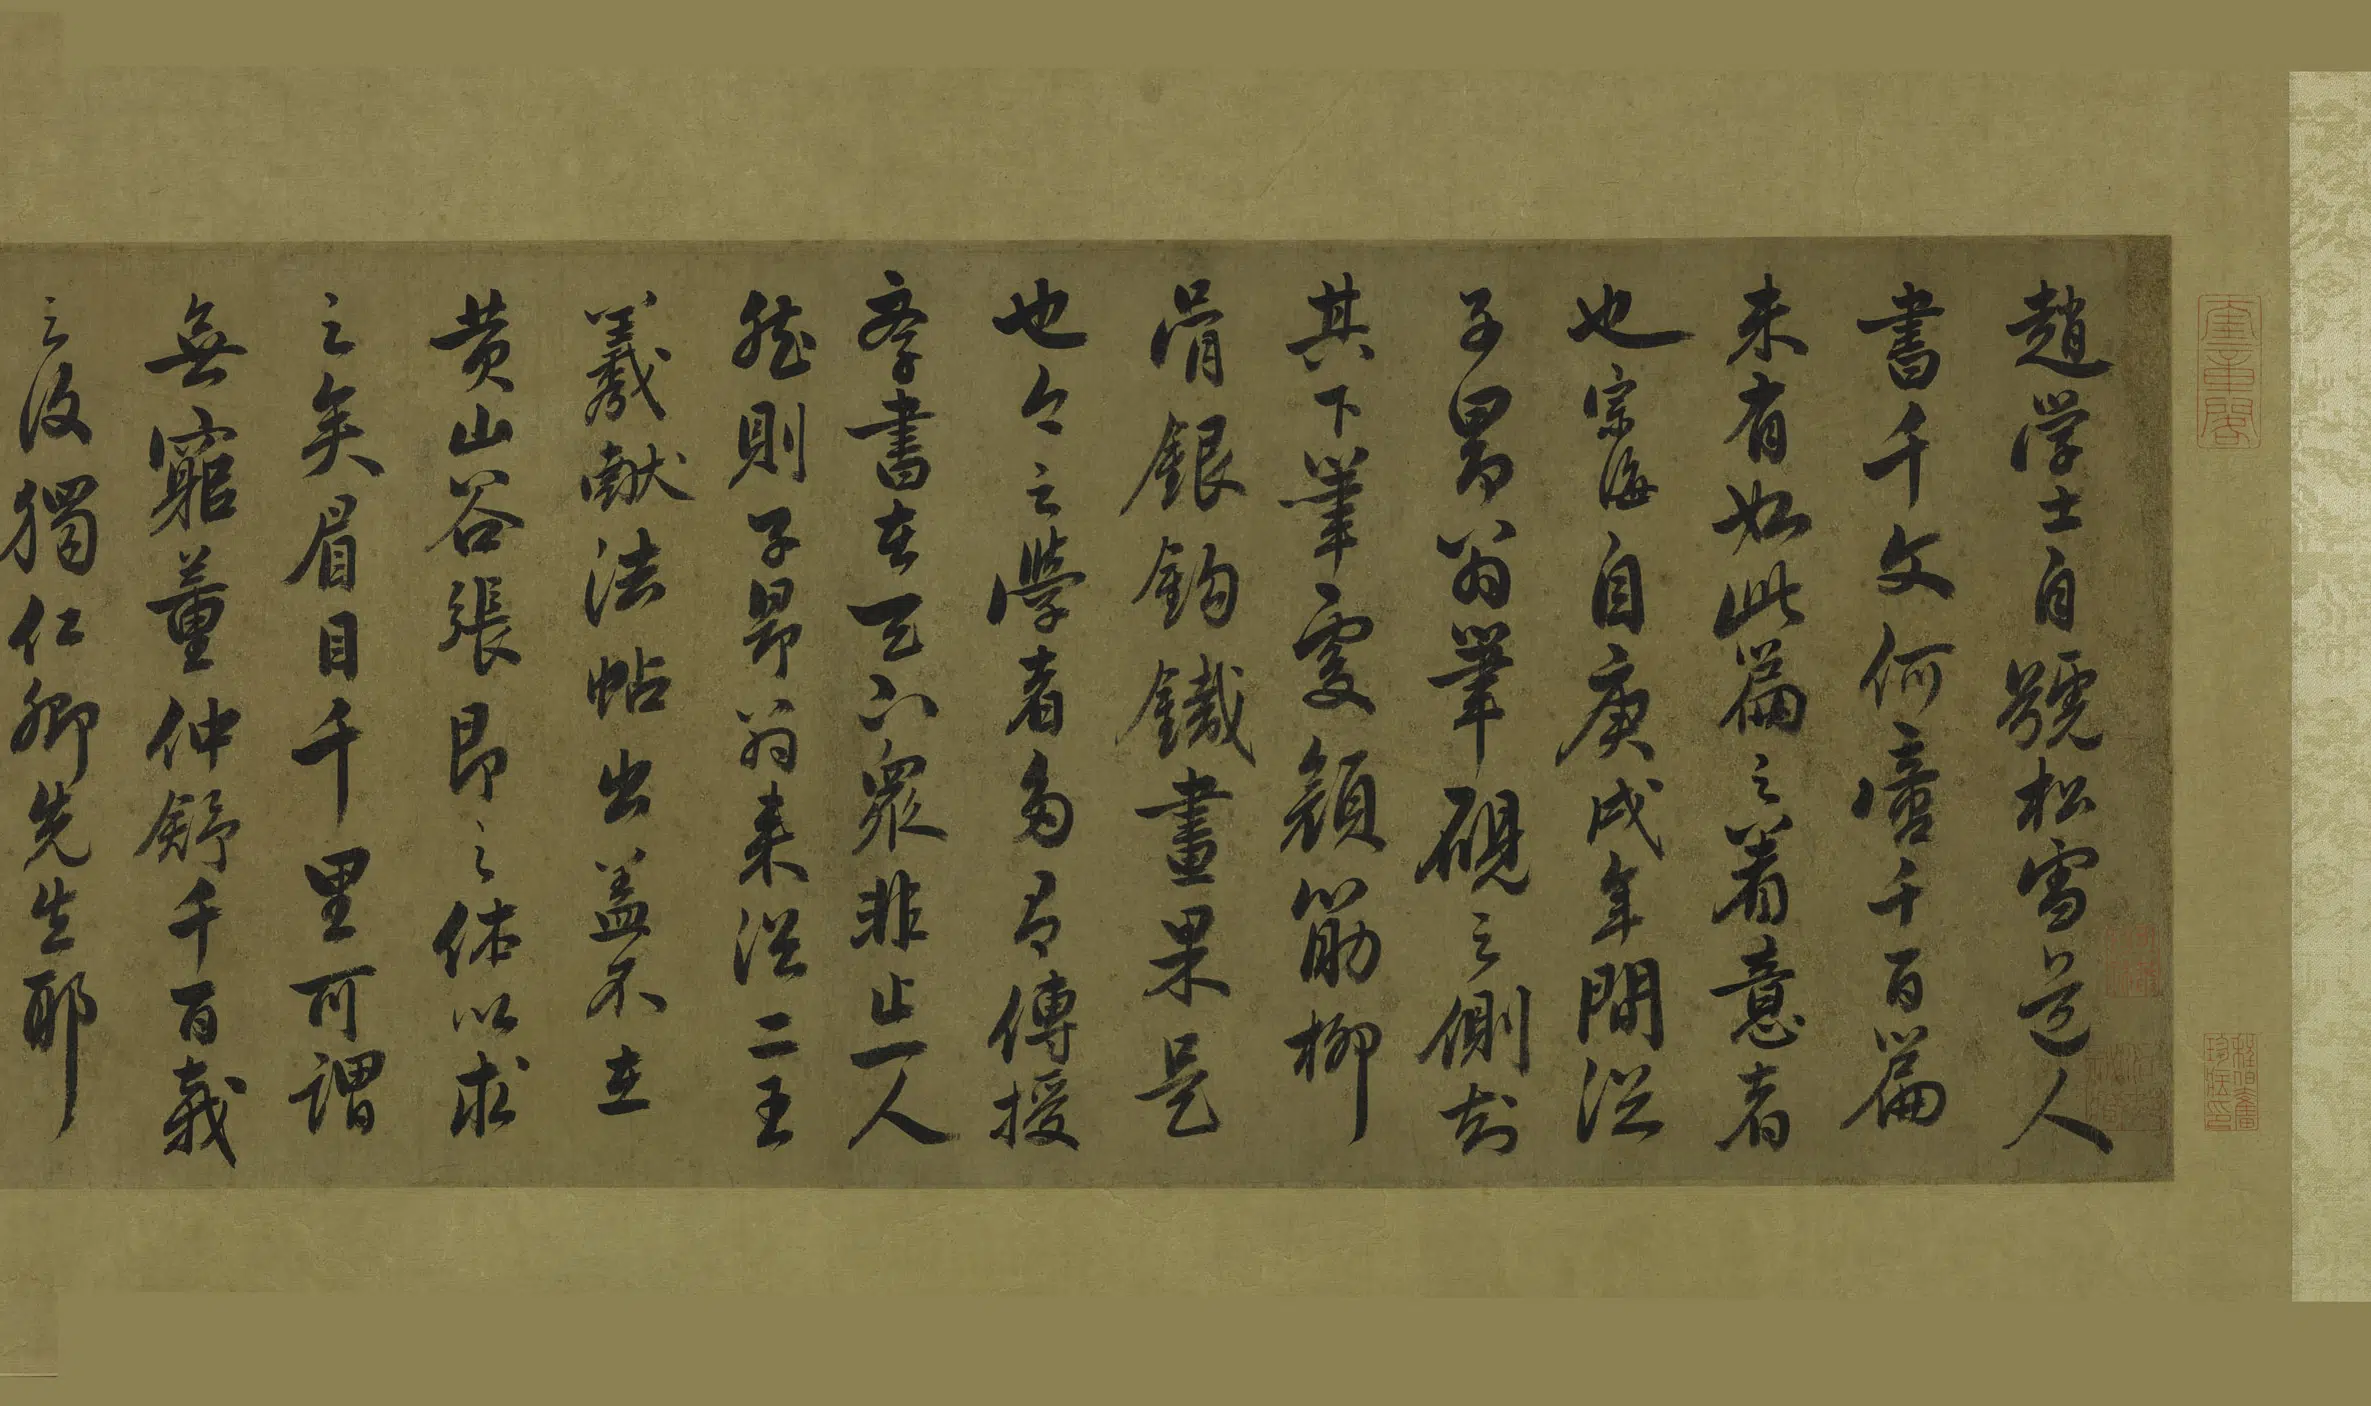 趙學士自號松雪道人
書千文何啻千百篇
未有如此篇之着意者
也宗海自庚戌年間從
子昂翁筆硯之側刻
其下筆處顏筋柳
骨銀鈎鐵畫果是
也今之學者多有傳授
學書在天下衆非止一人
然則子昂翁來從二王
羲獻法帖出蓋不在
黄山谷張即之之体以求
之矣眉目千里可謂
無窮董仲舒千百載
之後獨仁卿先生耶